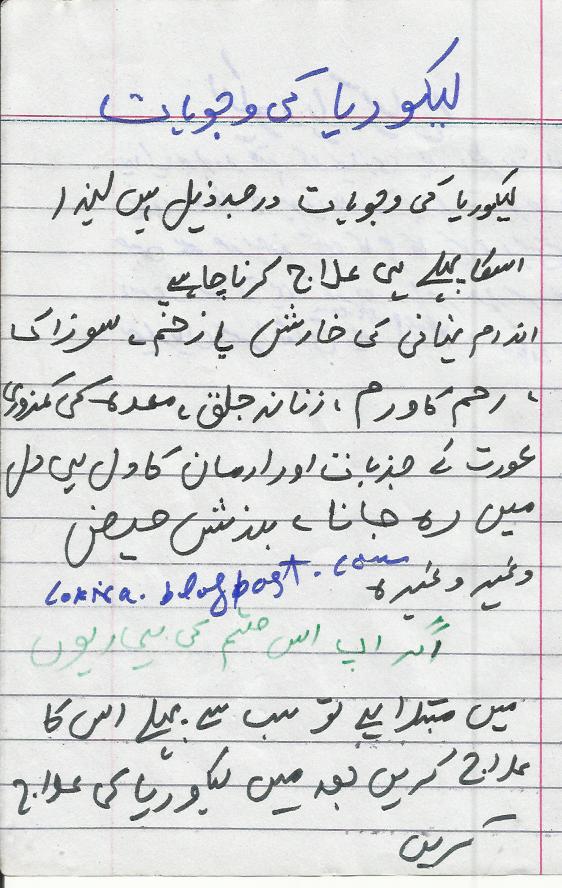 لیکوریا کی وجوہات
لیکوریا کی وجوہات درجہ ذیل ہیں لہذا
اسکا پہلے ہی علاج کرنا چاہیے
اندام نہانی کی خارش یا زخم، سوزاک
، رحم کا ورم، زنانہ جلق، معدہ کی کمزوری
عورت کے جذبات اور ارمان کا دل ہی دل
میں رہ جانا، بندش حیض
وغیر وغیرہ
.blogpost.com
اگر اپ اس قسم کی بیماریوں
میں مبتلا ہے تو سب سے پہلے اس کا
علاج کریں بعد میں لیکوریا کی علاج
کریں